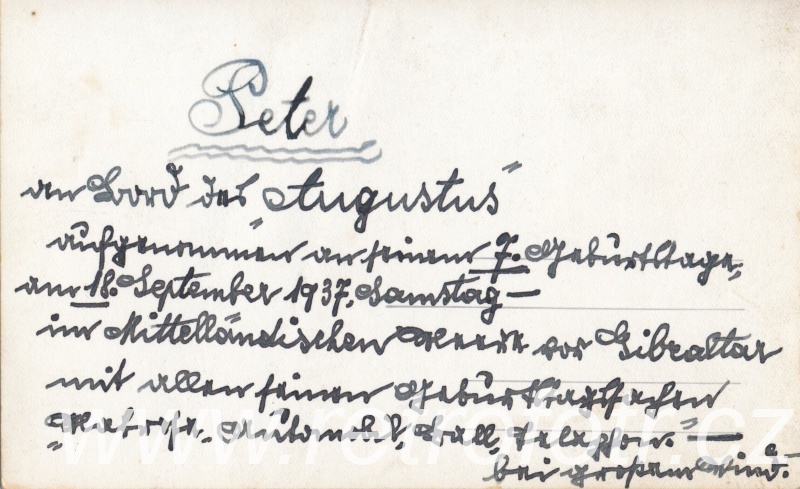 Peter
an Bord des "Augustus"
aufgenommen an seinem 7. Geburtstage,
am 18. September 1937, Samstag –
im Mittelländischen Meere vor Gibraltar
mit allen seinen Geburtstagssachen
Ball, Telephon." –
bei großem Wind.
www.retrofotr.cz